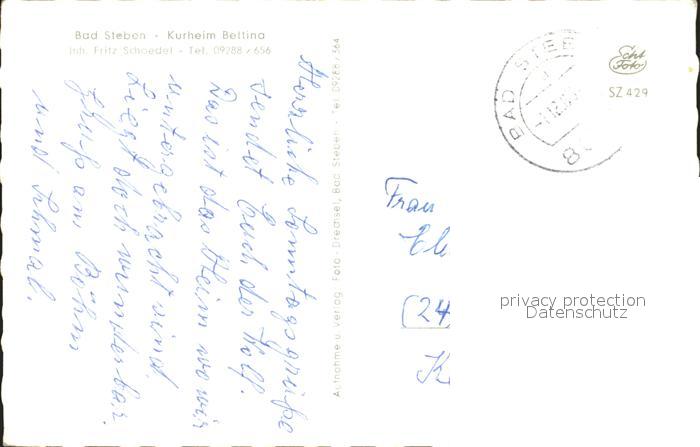 Bad Steben - Kurheim Bettina
Inh. Fritz Schoedel - Tel. 09288 / 656
Herzliche Sonntagsgrüße
sendet Euch der Rolf.
Das ist das Heim wo wir
untergebracht sind.
Liegt doch wunderbar.
Gruß am Böhm
und Schwab.
Aufnahme u. Verlag: Foto - Drechsel, Bad Steben - Tel. 09288 / 564
BAD STEB
8
Echt Foto
SZ 429
Frau
El
(24
K
privacy protection
Datenschutz